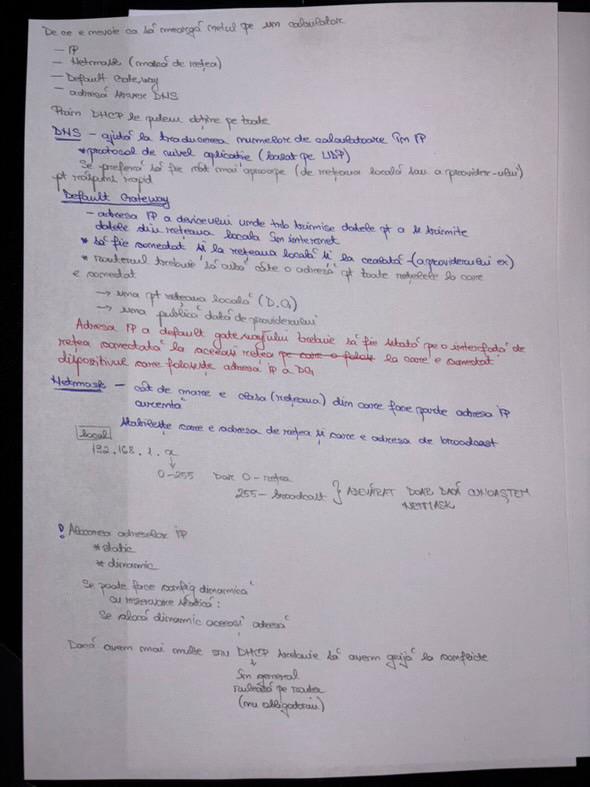 De ce e nevoie ca să meargă netul pe un calculator
- IP
- Netmask (mască de rețea)
- Default Gateway
- adresă server DNS
Prin DHCP le putem obține pe toate
DNS - ajută la traducerea numelor de calculatoare în IP
* protocol de nivel aplicație (bazat pe UDP)
Se preferă să fie cât mai aproape (de rețeaua locală sau a provider-ului)
pt răspuns rapid
Default Gateway
- adresa IP a device-ului unde trb trimise datele pt a le trimite
datele din rețeaua locală în internet
* să fie conectat și la rețeaua locală și la cealaltă - (a providerului ex)
* routerul trebuie să aibă câte o adresă pt toate rețelele la care
e conectat
→ una pt rețeaua locală (D.G)
→ una publică dată de providerului
Adresa IP a default gatewayului trebuie să fie setată pe o interfață de
rețea conectată la aceeași rețea pe care o folos la care e conectat
dispozitivul care folosește adresa IP a DG
Netmask - cât de mare e clasa (rețeaua) din care face parte adresa IP
curentă
Stabilește care e adresa de rețea și care e adresa de broadcast
local
192.168.1.x
↓
0-255 Dar 0-rețea
255-broadcast } ADEVĂRAT DOAR DACĂ CUNOAȘTEM
NETMASK
! Alocarea adreselor IP
* static
* dinamic
Se poate face config dinamică
cu rezervare statică:
Se alocă dinamic aceeași adresă
Dacă avem mai multe srv DHCP trebuie să avem grijă la conflicte
↓
în general
rulează pe router
(nu obligatoriu)